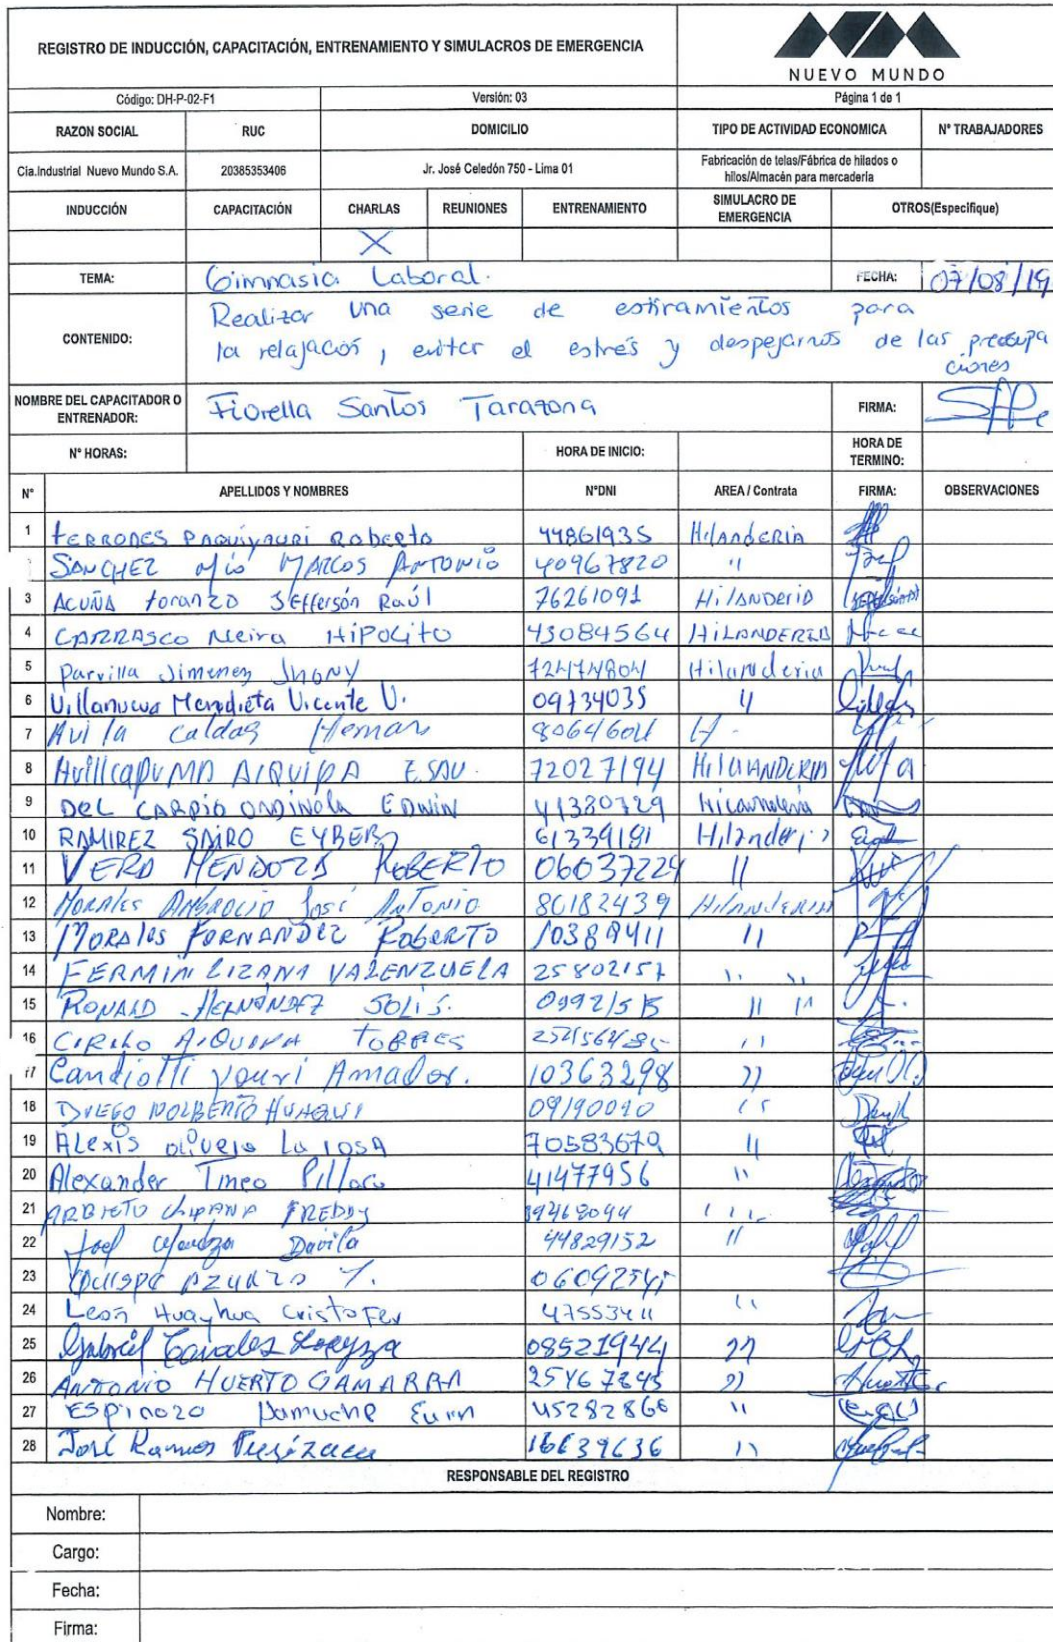 REGISTRO DE INDUCCIÓN, CAPACITACIÓN, ENTRENAMIENTO Y SIMULACROS DE EMERGENCIA
NUEVO MUNDO
Código: DH-P-02-F1 Versión: 03 Página 1 de 1
RAZON SOCIAL RUC DOMICILIO TIPO DE ACTIVIDAD ECONOMICA N° TRABAJADORES
Cía.Industrial Nuevo Mundo S.A. 20385353406 Jr. José Celedón 750 - Lima 01 Fabricación de telas/Fábrica de hilados o
hilos/Almacén para mercadería
INDUCCIÓN CAPACITACIÓN CHARLAS REUNIONES ENTRENAMIENTO SIMULACRO DE EMERGENCIA OTROS(Especifique)
X
TEMA: Gimnasia Laboral. FECHA: 07/08/19
CONTENIDO: Realizar una serie de estiramientos para
la relajación, evitar el estrés y despejarnos de las preocupa
ciones
NOMBRE DEL CAPACITADOR O ENTRENADOR: Fiorella Santos Tarazona FIRMA:
N° HORAS: HORA DE INICIO: HORA DE TERMINO:
N° APELLIDOS Y NOMBRES N°DNI AREA / Contrata FIRMA: OBSERVACIONES
1 TERRONES PAQUIYAURI Roberto 44861935 HilANDERIA
SANCHEZ Mío MARCOS ANTONIO 40967820 "
3 ACUÑA toranzo Jefferson Raúl 76261091 HilANDERIA
4 CARRASCO Neira HiPOLito 43084564 HiLANDERIA
5 Parvilla Jimenez Jhony Hilanderia
6 Villanueva Mendieta Vicente V. 09734035 "
7 Avila Caldas Hernan 8064604 H.
8 HUillcapuMA AIQUIPA ESAU. 72027194 HiLANDERIA
9 DEL CARPIO ORDINOLA EDWIN 41380729
10 RAMIREZ SAIRO EYBER 61339191 Hilanderia
11 VERA MENDOZA ROBERTO 06037224 "
12 MORALES AMBROCIO José ANTONIO 80182439 HilANDERIA
13 MORALES FERNANDEZ ROBERTO 10389411 "
14 FERMIN LIZANA VALENZUELA 25802157 " "
15 RONALD HERNÁNDEZ SOLIS. " "
16 CIRILO AIQUIPA TORRES "
17 Candiotti youri Amador. 10363298 "
18 DIEGO NOLBERTO 09190090 "
19 Alexis olivejo La ROSA 70583679 "
20 Alexander Tineo Pillaca 41477956 "
21 ARBIETO CHIPANA FREDDY
22 Joel Mendoza Davila 44829152 "
23 Quispe Y.
24 León Huayhua Cristofer 47553411 "
25 Gabriel Canales Loayza 08521944 "
26 ANTONIO HUERTO GAMARRA 25467845 "
27 ESPINOZO 45282866 "
28 José Ramos 16639636 "
RESPONSABLE DEL REGISTRO
Nombre:
Cargo:
Fecha:
Firma: